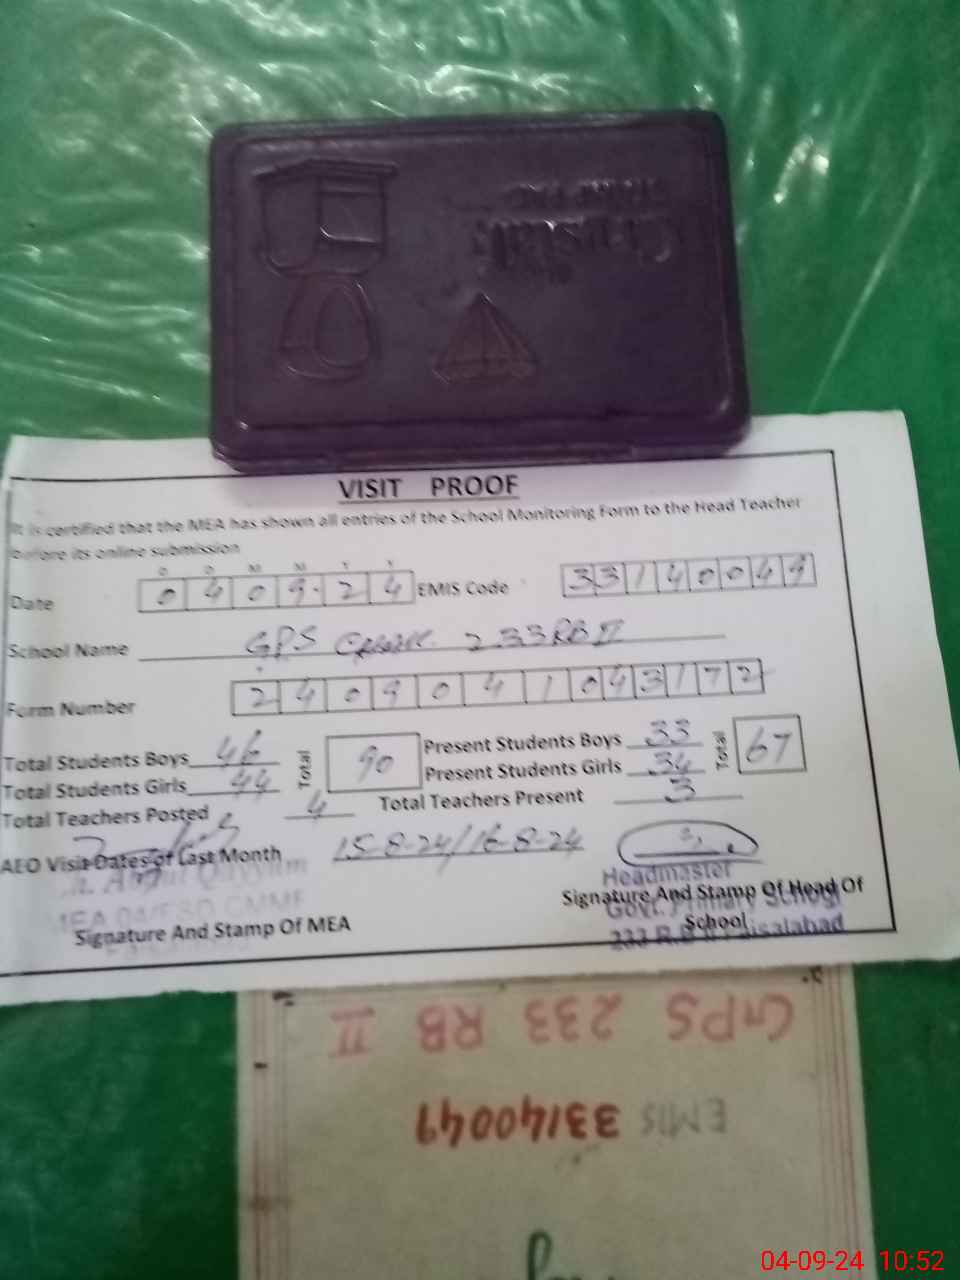 Crystal
STAMP PAD
VISIT PROOF
It is certified that the MEA has shown all entries of the School Monitoring Form to the Head Teacher
before its online submission
D D M M Y Y
Date 0 4 0 9 2 4 EMIS Code 3 3 1 4 0 0 4 9
School Name GPS 233 RB II
Form Number 2 4 0 9 0 4 1 0 4 3 1 7 2
Total Students Boys 46 Total 90 Present Students Boys 33 Total 67
Total Students Girls 44 Present Students Girls 34
Total Teachers Posted 4 Total Teachers Present 3
AEO Visit Dates of Last Month 15-8-24/16-8-24
Headmaster
Signature And Stamp Of Head Of
School
Govt. Primary School
233 R.B II Faisalabad
Signature And Stamp Of MEA
GPS 233 RB II
EMIS 33140049
04-09-24 10:52